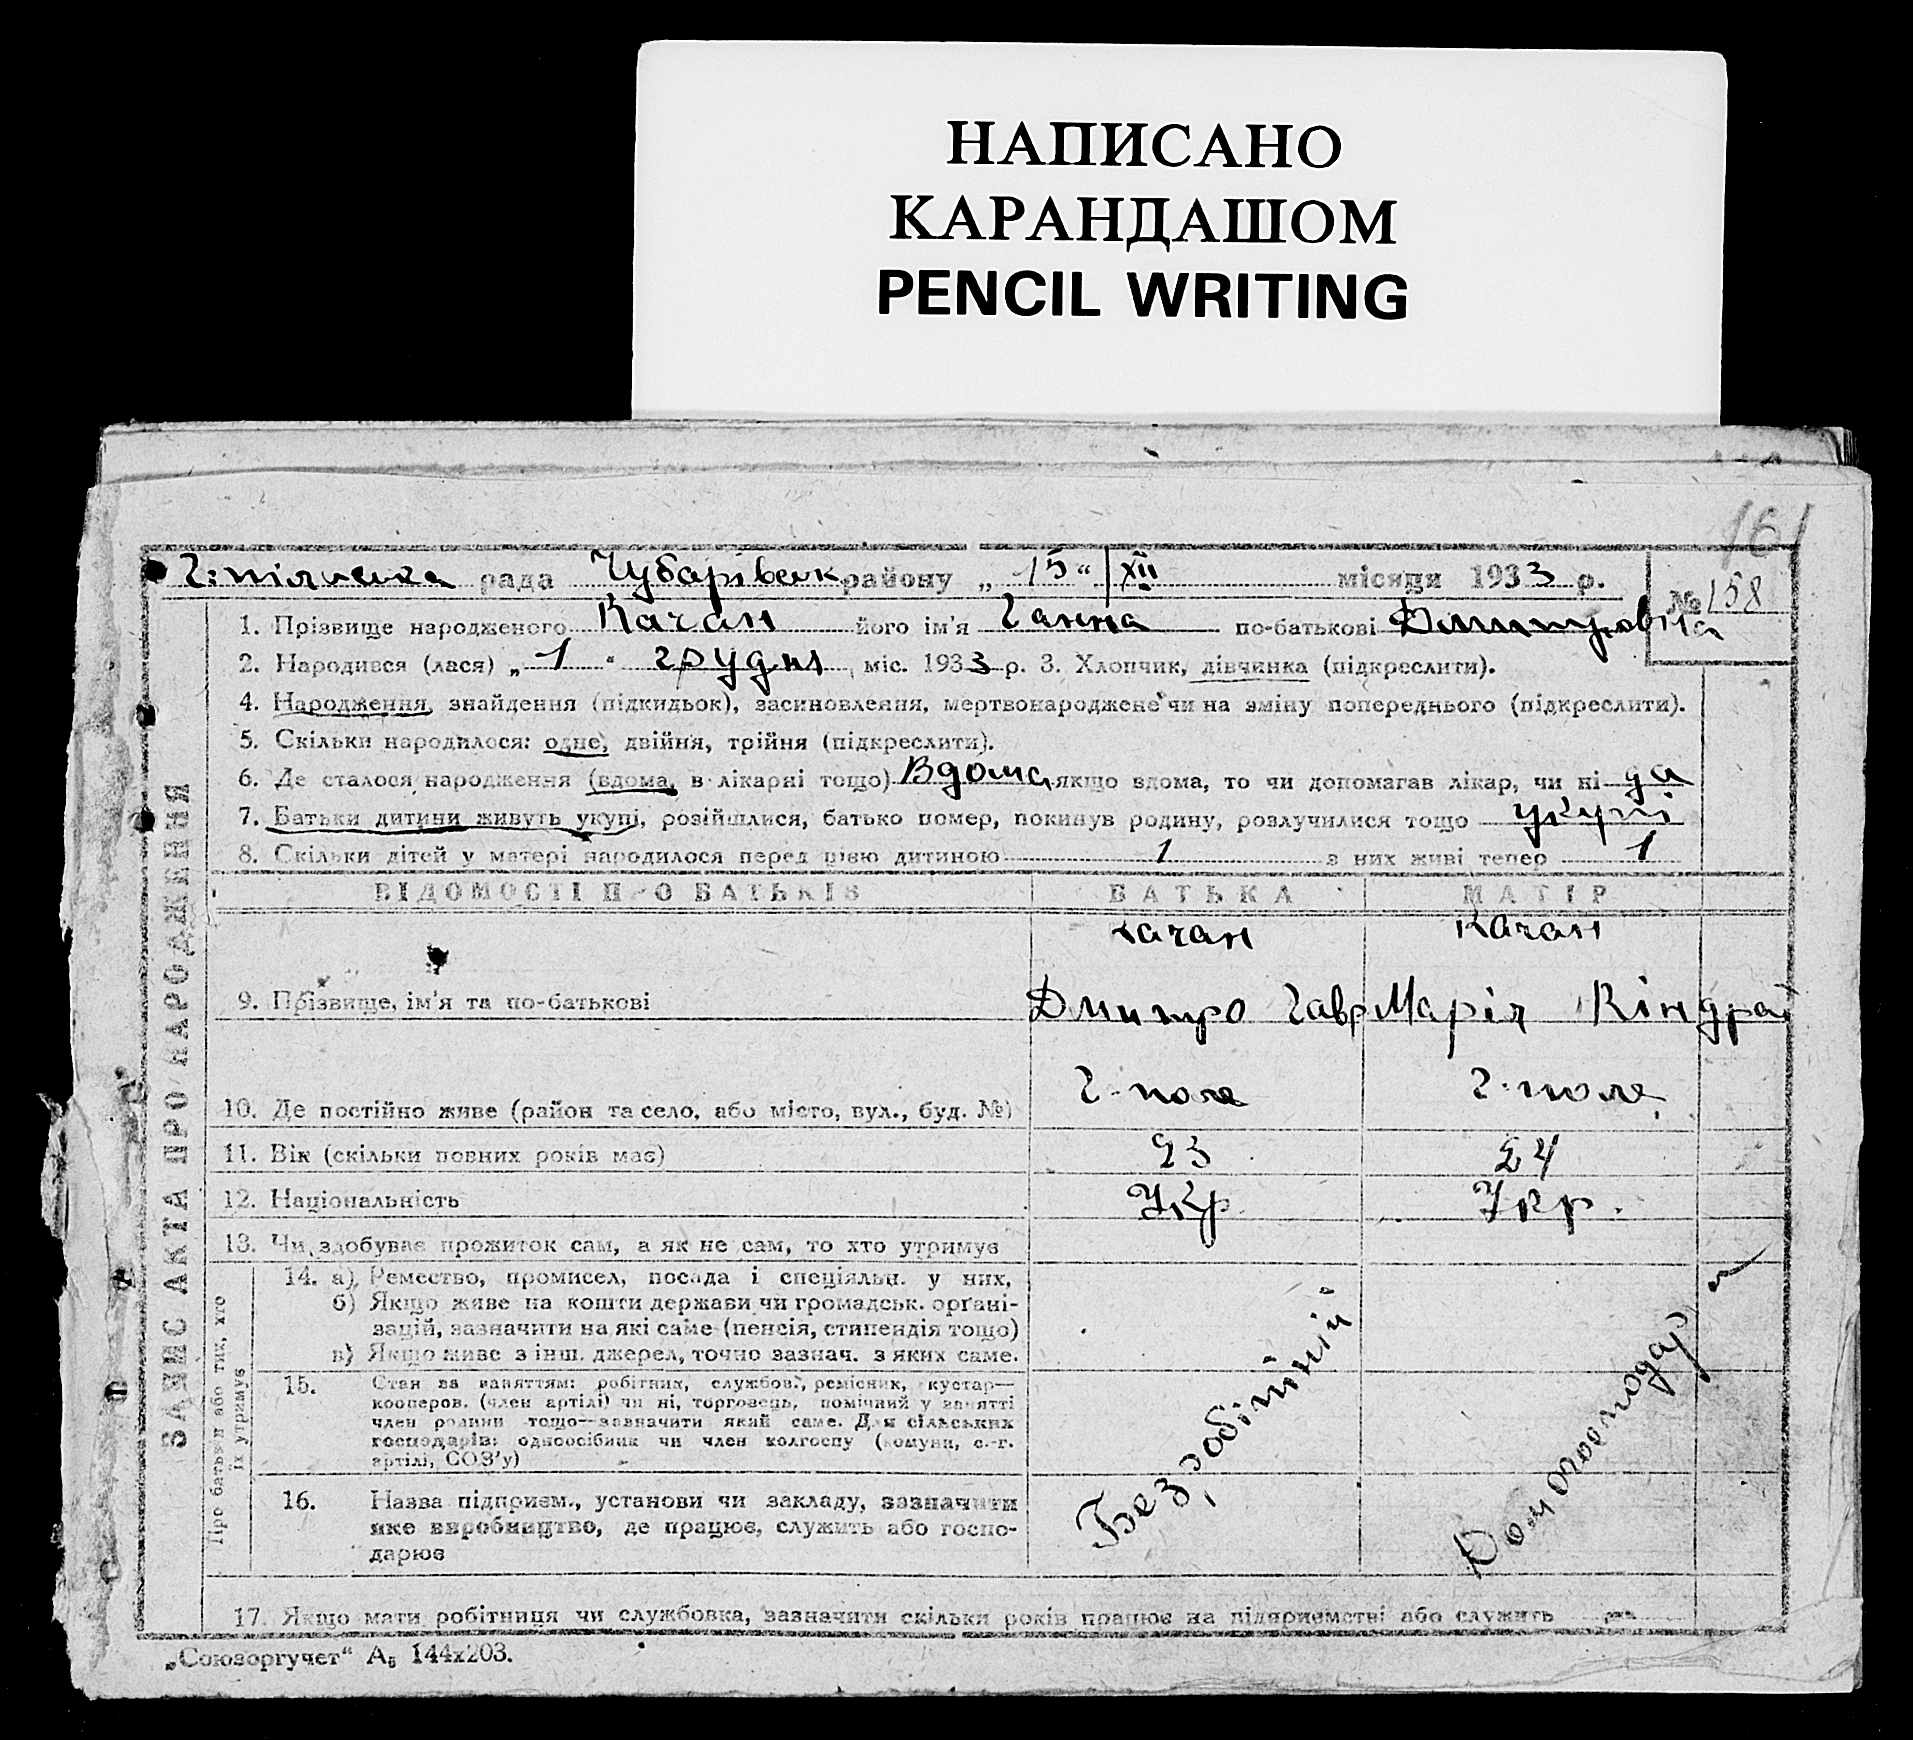 НАПИСАНО
КАРАНДАШОМ
PENCIL WRITING
161
Г:пільська рада Чубарівськ району „15“ XII місяця 1933 р.
№ 158
1. Прізвище народженого Качан його ім'я Ганна по-батькові Дмитровна
2. Народився (лася) „1“ грудня міс. 1933 р. 3. Хлопчик, дівчинка (підкреслити).
4. Народження, знайдення (підкидьок), засиновлення, мертвонароджене чи на зміну попереднього (підкреслити).
5. Скільки народилося: одне, двійня, трійня (підкреслити).
6. Де сталося народження (вдома, в лікарні тощо) Вдома, якщо вдома, то чи допомагав лікар, чи ні да
7. Батьки дитини живуть укупі, розійшлися, батько помер, покинув родину, розлучилися тощо укупі
8. Скільки дітей у матері народилося перед цією дитиною 1 з них живі тепер 1
ЗАПИС АКТА ПРО НАРОДЖЕННЯ
ВІДОМОСТІ ПРО БАТЬКІВ БАТЬКА МАТІР
Качан Качан
9. Прізвище, ім'я та по-батькові Дмитро Гавр Марія Кіндрат
10. Де постійно живе (район та село, або місто, вул., буд. №) Г-поле Г-поле
11. Вік (скільки повних років має) 23 24
12. Національність Укр Укр.
13. Чи здобуває прожиток сам, а як не сам, то хто утримує
Про батьків або тих, хто їх утримує
14. а) Ремество, промисел, посада і спеціяльн. у них,
б) Якщо живе на кошти держави чи громадськ. орґані-
зацій, зазначити на які саме (пенсія, стипендія тощо)
в) Якщо живе з інш. джерел, точно зазнач. з яких саме.
15. Стан за заняттям: робітник, службов., ремісник, кустар—
кооперов. (член артілі) чи ні, торговець, помічний у занятті
член родини тощо—зазначити який саме. Для сільських
господарів: одноосібник чи член колгоспу (комуни, с.-г.
артілі, СОЗ'у)
16. Назва підприєм., установи чи закладу, зазначити
яке виробництво, де працює, служить або госпо-
дарює
Безробітній
Домогосподар
17. Якщо мати робітниця чи службовка, зазначити скільки років працює на підприємстві або служить
„Союзоргучет“ А5 144х203.